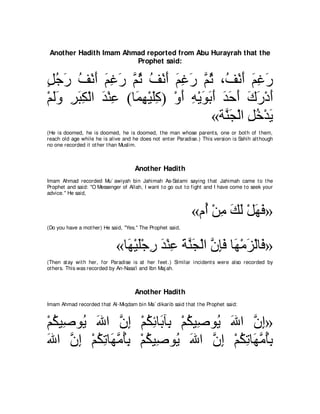 Another Hadith Imam Ahmad reported from Abu Hurayrah that the
Prophet said:
رَغِمَ أَنْفُ، ثُمَّ رَغِمَ أَنْفُ ثُمَّ رَغِمَ أَنْفُ رَجُلٍ
أَدْرَكَ أَحَدَ أَبَوَيْهِ أَوْ (كِلَيْهِمَا) عِنْدَ الْكِبَرِ وَلَمْ
يَدْخُلِ الْجَنَّةَ»
(He is doomed, he is doomed, he is doomed, the man whose parents, one or both of them,
reach old age while he is alive and he does not enter Paradise.) This version is Sahih although
no one recorded it other than Muslim.
Another Hadith
Imam Ahmad recorded Mu`awiyah bin Jahimah As-Salami saying that Jahimah came to the
Prophet and said: "O Messenger of Allah, I want to go out to fight and I have come to seek your
advice." He said,
«فَهَلْ لَكَ مِنْ أُم»
(Do you have a mother) He said, "Yes." The Prophet said,
«فَالْزَمْهَا فَإِنَّ الْجَنَّةَ عِنْدَ رِجْلَيْهَا»
(Then stay with her, for Paradise is at her feet.) Similar incidents were also recorded by
others. This was recorded by An-Nasa'i and Ibn Majah.
Another Hadith
Imam Ahmad recorded that Al-Miqdam bin Ma`dikarib said that the Prophet said:
«إِنَّ اللهَ يُوصِيكُمْ بِآبَائِكُمْ إِنَّ اللهَ يُوصِيكُمْ
بِأُمَّهَاتِكُمْ إِنَّ اللهَ يُوصِيكُمْ بِأُمَّهَاتِكُمْ إِنَّ اللهَ